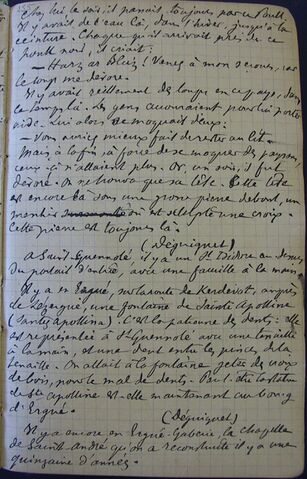 chez lui le soir, il passait toujours par ce
Il y avait de l'eau là, dans l'hiver, jusqu'à la
ceinture. Chaque qu'il arrivait près de ce
nord, il criait:
— Harz ar Bleiz! Venez à mon secours,
le loup me dévore.
Il y avait réellement des loups en ce pays, dans
ce temps là. Les gens accouraient pour lui porter
aide. Lui alors se moquait d'eux:
— Vous auriez mieux fait de rester au lit.
Mais à la fin, à force de se moquer des paysans,
ceux-ci n'allaient plus. Or, un soir, il fut
dévoré. On ne trouva que sa tête. Cette tête
est encore là sous une grosse pierre debout, un
menhir où est sculptée une croix.
Cette pierre est toujours là.
(Déguignet)
A Saint Guennolé, il y a un St Isidore au dessus
du portail d'entrée, avec une faucille à la main
Il y a en Ergué, sur la route de Kerdévot, auprès
de Lézergué, une fontaine de Sainte Apolline
(Santez Apollina). C'est la patronne des dents: elle
est représentée à St Guennolé avec une tenaille
à la main, et une dent entre les pinces de la
tenaille. On allait à la fontaine jeter des croix
de bois, pour le mal de dents. Peut-être la statue
de Ste Apolline est-elle maintenant au bourg
d'Ergué.
(Déguignet)
Il y a encore en Ergué-Gabéric la chapelle
de Saint-André qu'on a reconstruite il y a une
quinzaine d'années.